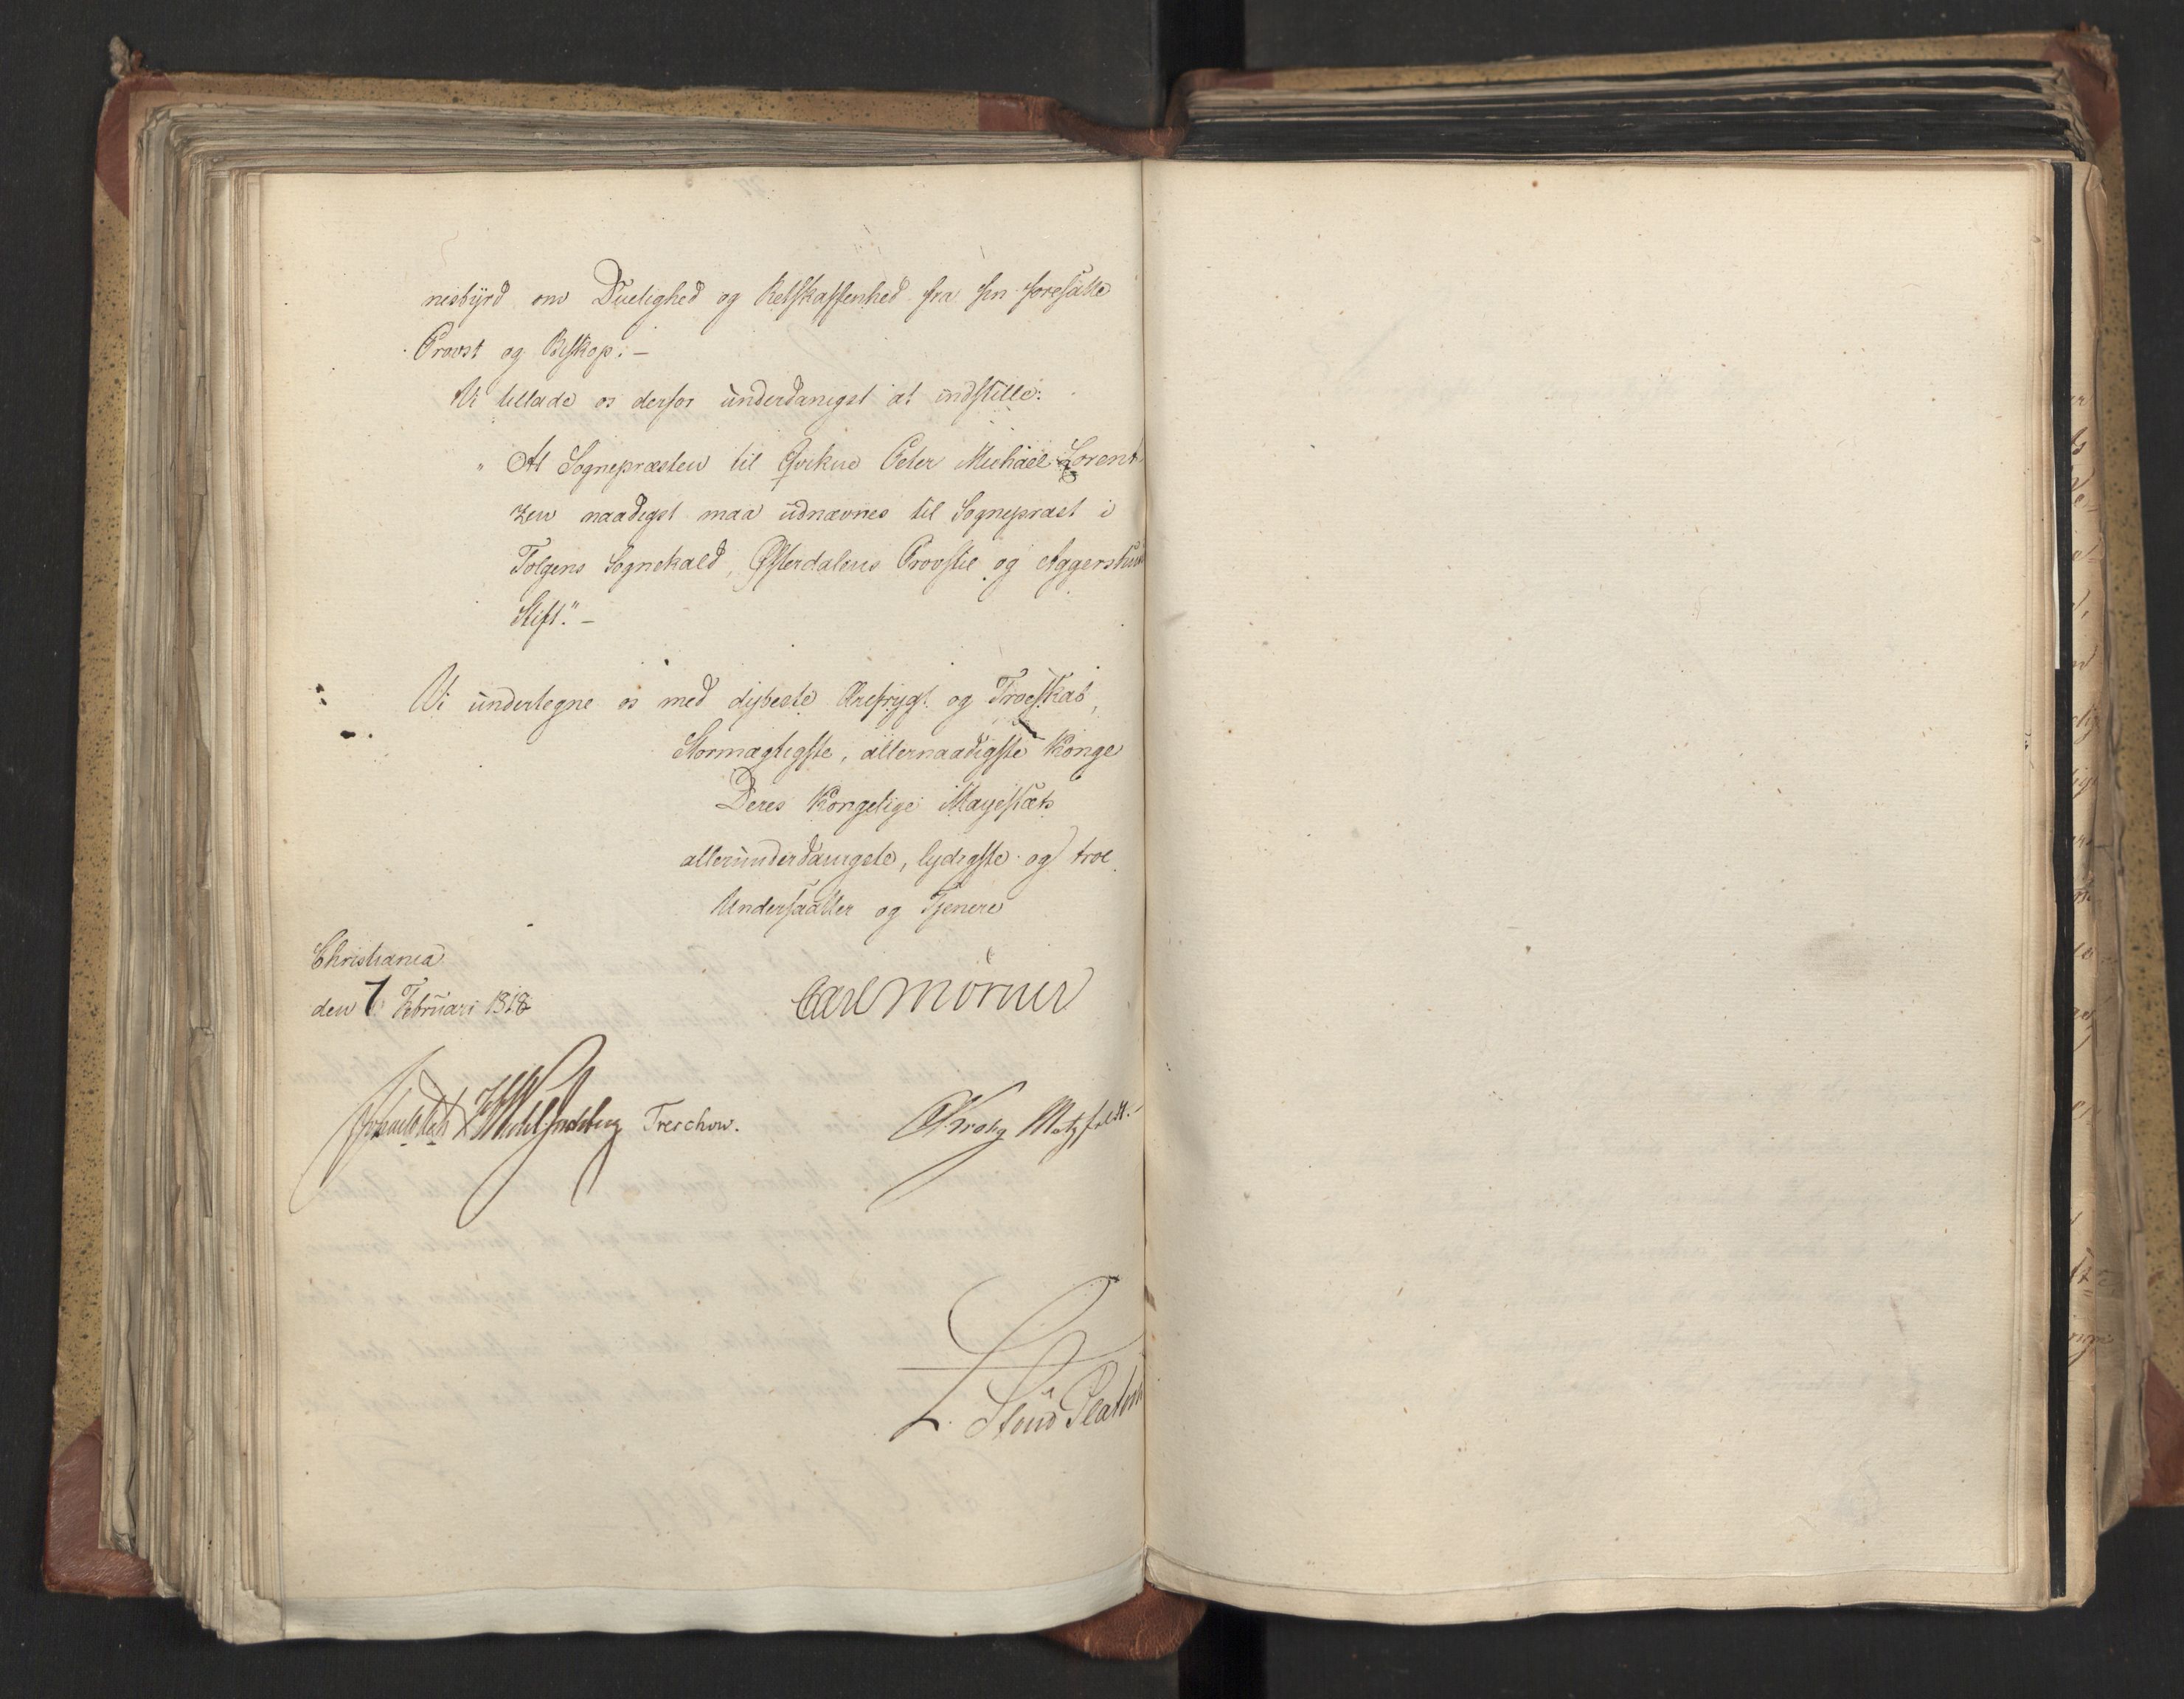 nesbyrd om Duelighed og Retskaffenhed fra sin foresatte
Provst og Biskop. —
Vi tillade os derfor underdanigst at indstille:
" At Sognepræsten til Qvikne Peter Michael Lorent-
zen naadigst maa udnævnes til Sognepræst i
Tolgens Sognekald, Østerdalens Provstie og Aggershuus
Stift." —
Vi undertegne os med dybeste Ærefrygt og Troeskab,
Stormægtigste, allernaadigste Konge
Deres Kongelige Mayestæts
allerunderdanigste, lydigste og troe
Undersaatter og Tjenere
Christiania
den 7 Februari 1818
Carl Mörner
Treschow.
Krohg Motzfeldt.
L. Stoud Platou